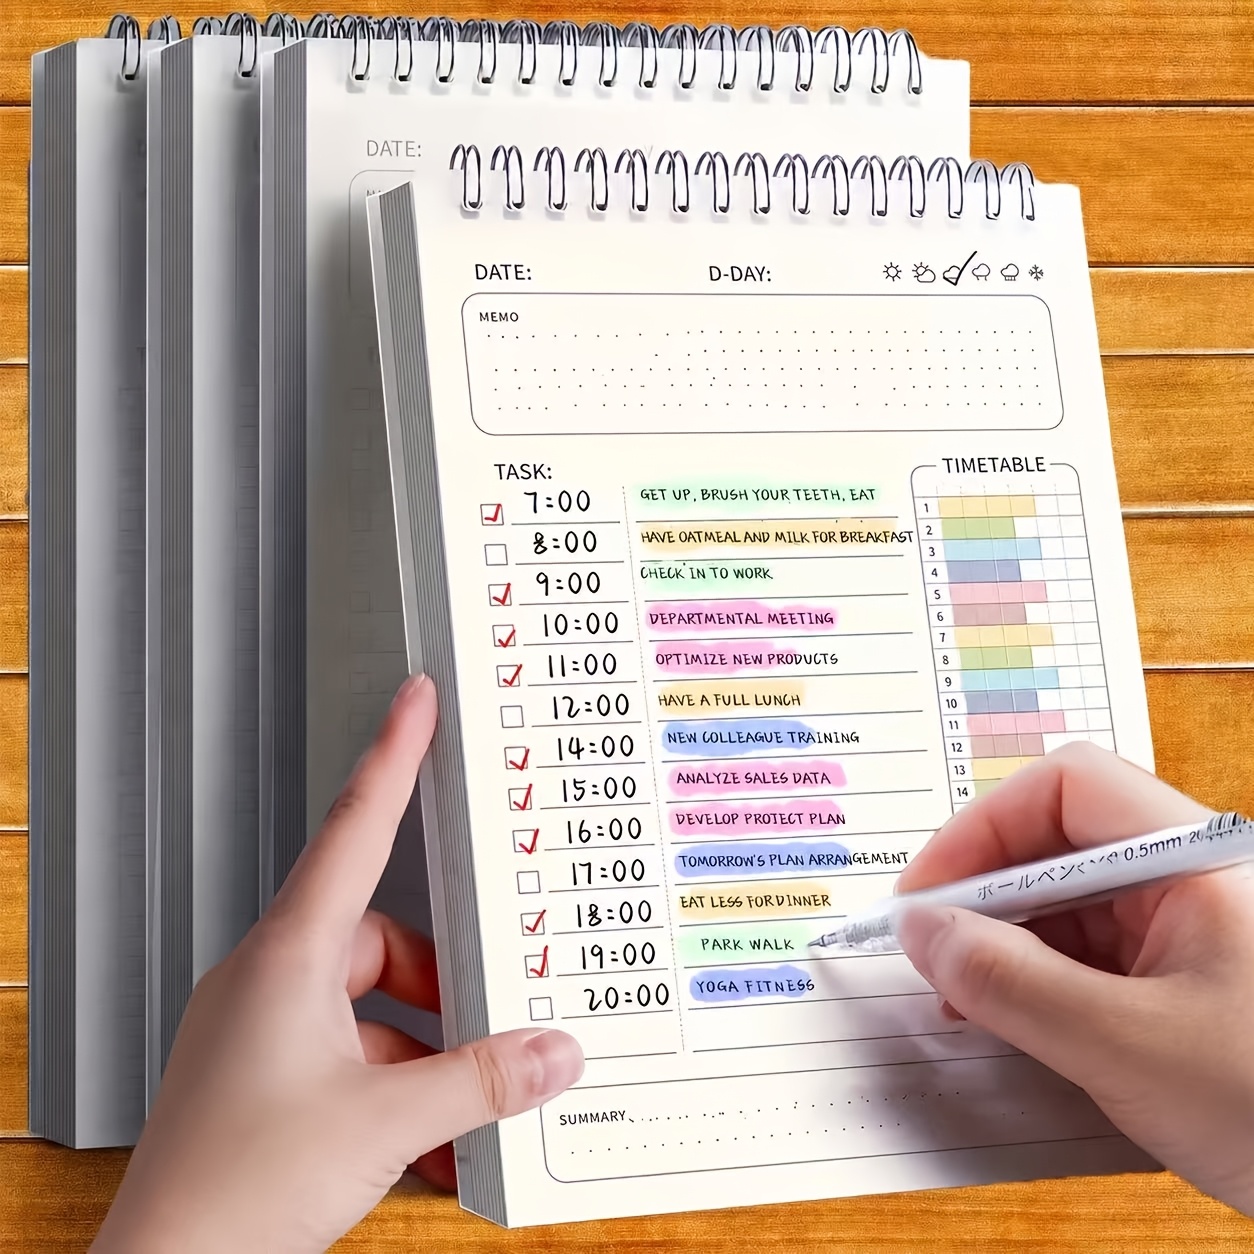 DATE:
DATE:
D-DAY:
MEMO
TASK:
TIMETABLE
7:00 GET UP, BRUSH YOUR TEETH, EAT
8:00 HAVE OATMEAL AND MILK FOR BREAKFAST
9:00 CHECK IN TO WORK
10:00 DEPARTMENTAL MEETING
11:00 OPTIMIZE NEW PRODUCTS
12:00 HAVE A FULL LUNCH
14:00 NEW COLLEAGUE TRAINING
15:00 ANALYZE SALES DATA
16:00 DEVELOP PROTECT PLAN
17:00 TOMORROW'S PLAN ARRANGEMENT
18:00 EAT LESS FOR DINNER
19:00 PARK WALK
20:00 YOGA FITNESS
1
2
3
4
5
6
7
8
9
10
11
12
13
14
ボールペン 0.5mm
SUMMARY